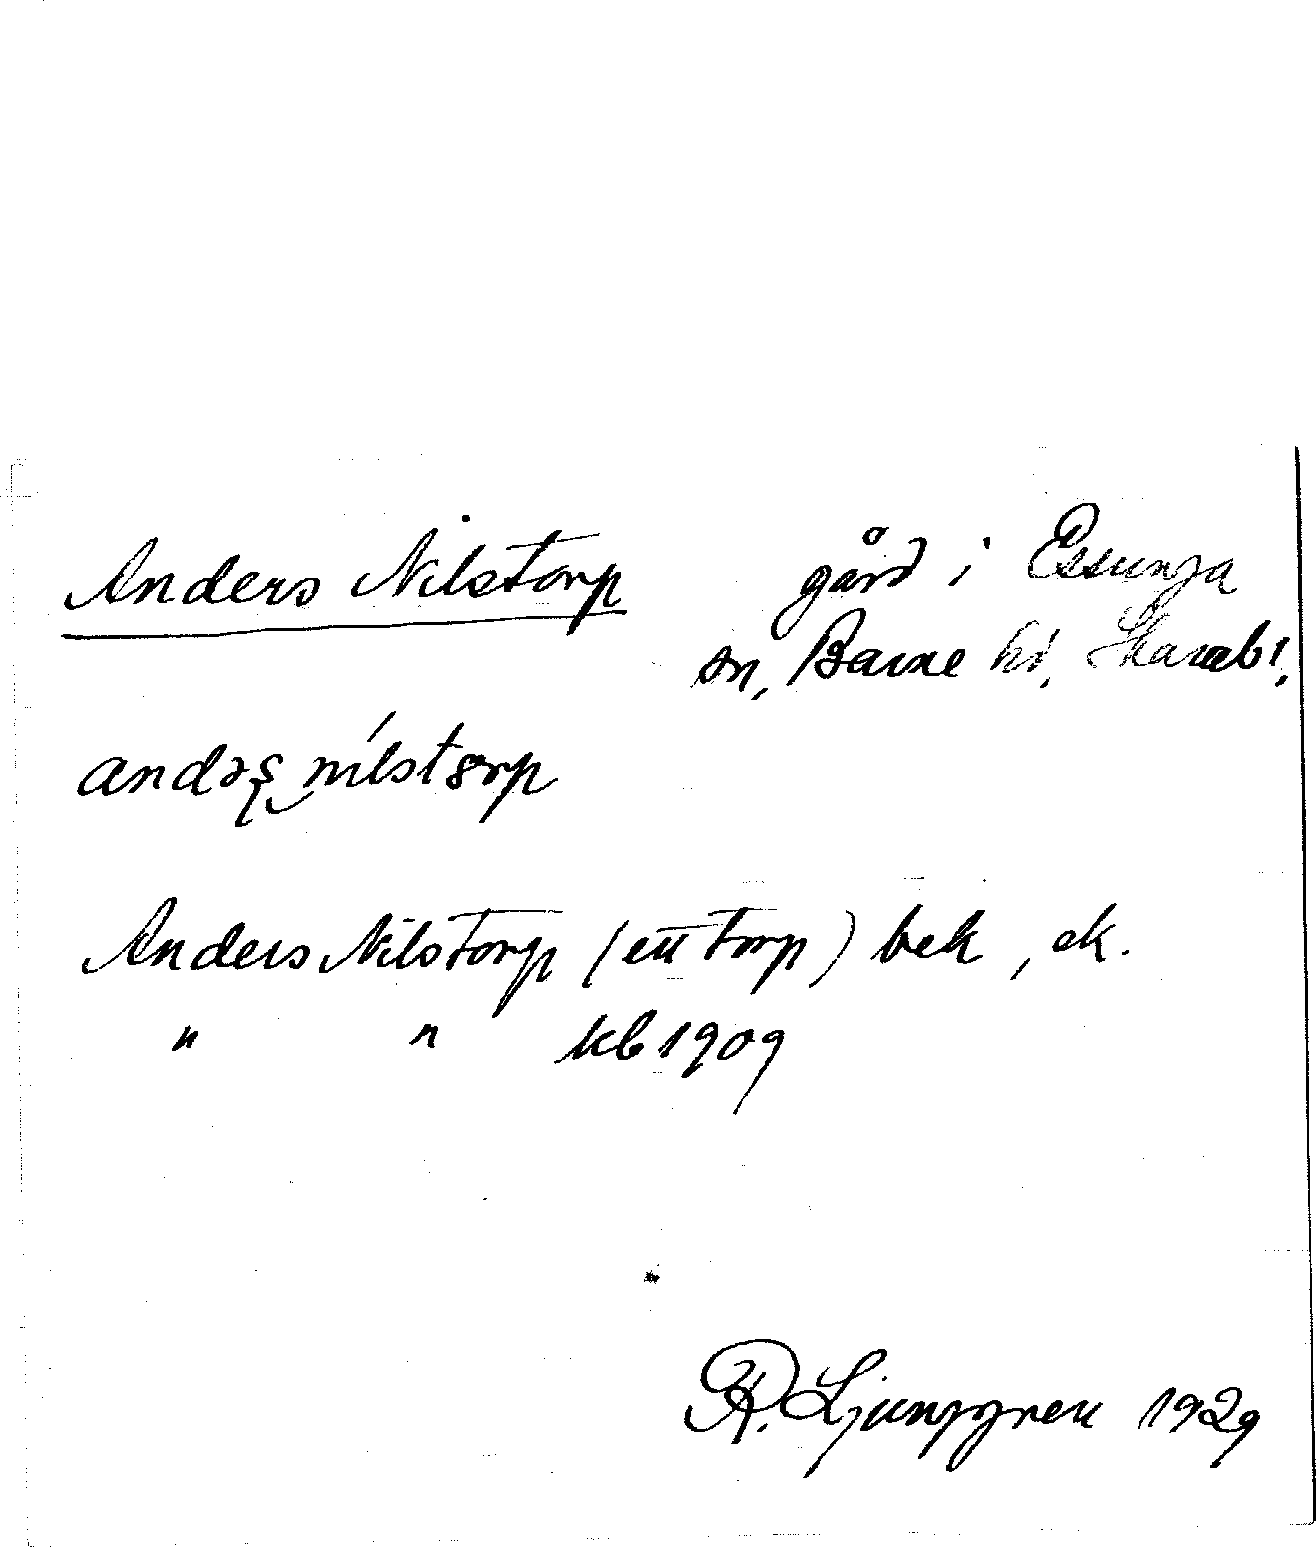 Anders Nilstorp gård i Essunga
sn, Barne hd, Skarab!,
andəʂ nílstɔrp
Anders Nilstorp (ett torp) bek, ek.
" " kb 1909
R. Ljunggren 1929